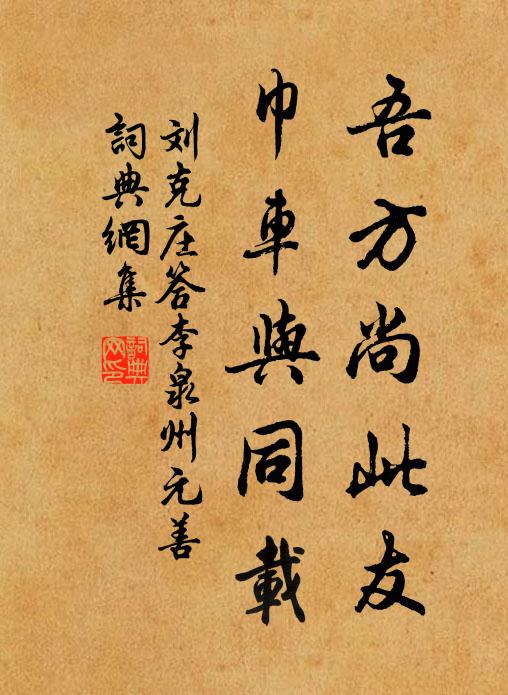 吾方尚此友
巾車與同載
刘克庄答李泉州元善
詞典網集
詞典
网印